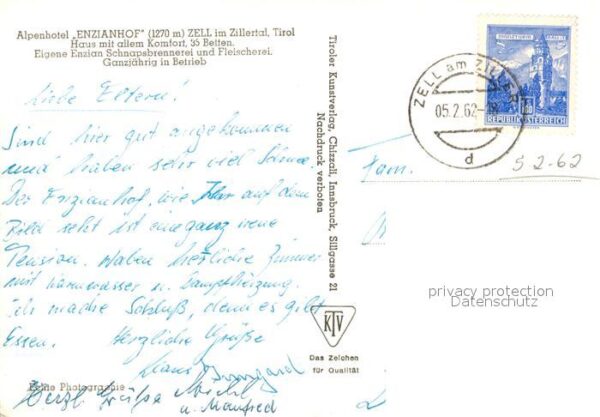 Alpenhotel „ENZIANHOF" (1270 m) ZELL im Zillertal, Tirol
Haus mit allem Komfort, 35 Betten.
Eigene Enzian Schnapsbrennerei und Fleischerei.
Ganzjährig in Betrieb
Liebe Eltern!
Sind hier gut angekommen
und haben sehr viel Schnee.
Der Enzianhof, wie Ihr auf dem
Bild seht ist eine ganz neue
Pension. Haben herrliche Zimmer
mit warmwasser u. Dampfheizung.
Ich mache Schluß, denn es gibt
Essen. Herzliche Grüße
Klaus Irmgard
Echte Photographie
Herzl. Grüße Michl
u. Manfred
Tiroler Kunstverlag, Chizzali, Innsbruck, Sillgasse 21
Nachdruck verboten
KTV
Das Zeichen
für Qualität
ZELL am ZILLER
05.2.62
d
REPUBLIK ÖSTERREICH
Fam.
5 2-62
privacy protection
Datenschutz